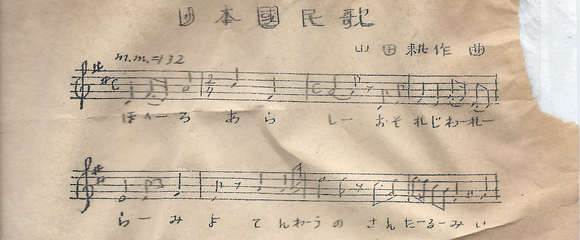 日本國民歌
山田耕作 曲
m.m.=132
ほへーろ あら しー おそ れじわーれー
らー みよ てんわうの さんたーるーみい